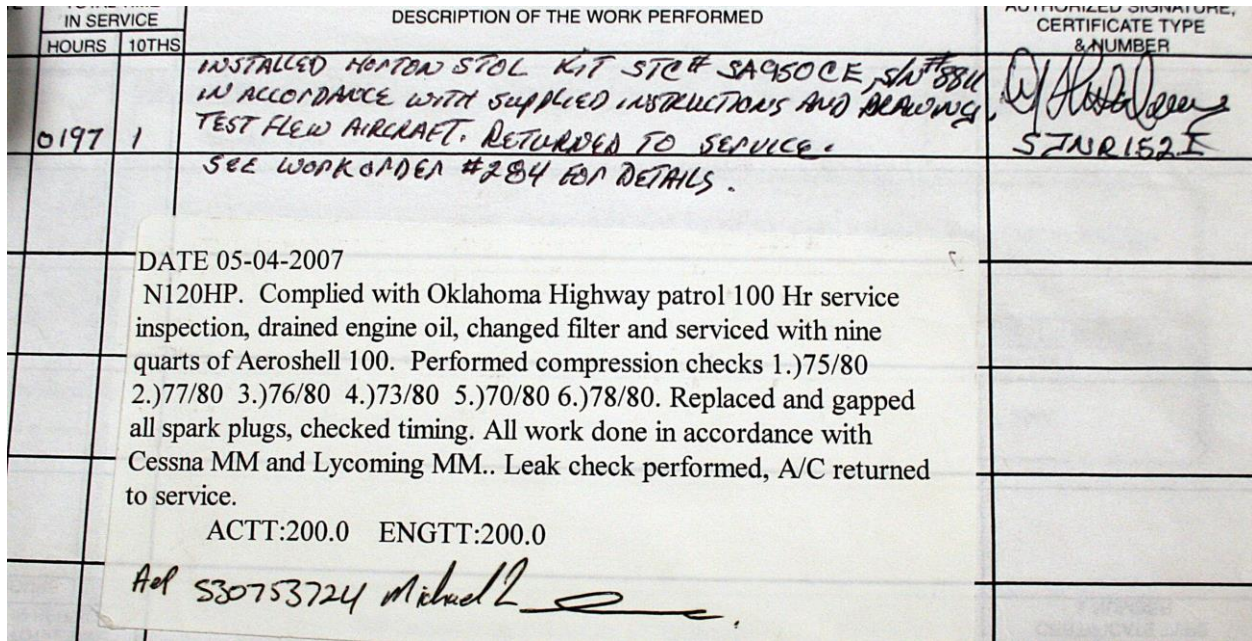 IN SERVICE
HOURS 10THS
DESCRIPTION OF THE WORK PERFORMED
AUTHORIZED SIGNATURE,
CERTIFICATE TYPE
& NUMBER
INSTALLED HORTON STOL KIT STC# SA950CE, S/N#
IN ACCORDANCE WITH SUPPLIED INSTRUCTIONS AND DRAWING.
0197 1 TEST FLEW AIRCRAFT. RETURNED TO SERVICE.
SEE WORKORDER #284 FOR DETAILS.
DATE 05-04-2007
N120HP. Complied with Oklahoma Highway patrol 100 Hr service
inspection, drained engine oil, changed filter and serviced with nine
quarts of Aeroshell 100. Performed compression checks 1.)75/80
2.)77/80 3.)76/80 4.)73/80 5.)70/80 6.)78/80. Replaced and gapped
all spark plugs, checked timing. All work done in accordance with
Cessna MM and Lycoming MM.. Leak check performed, A/C returned
to service.
ACTT:200.0 ENGTT:200.0
530753724 Michael